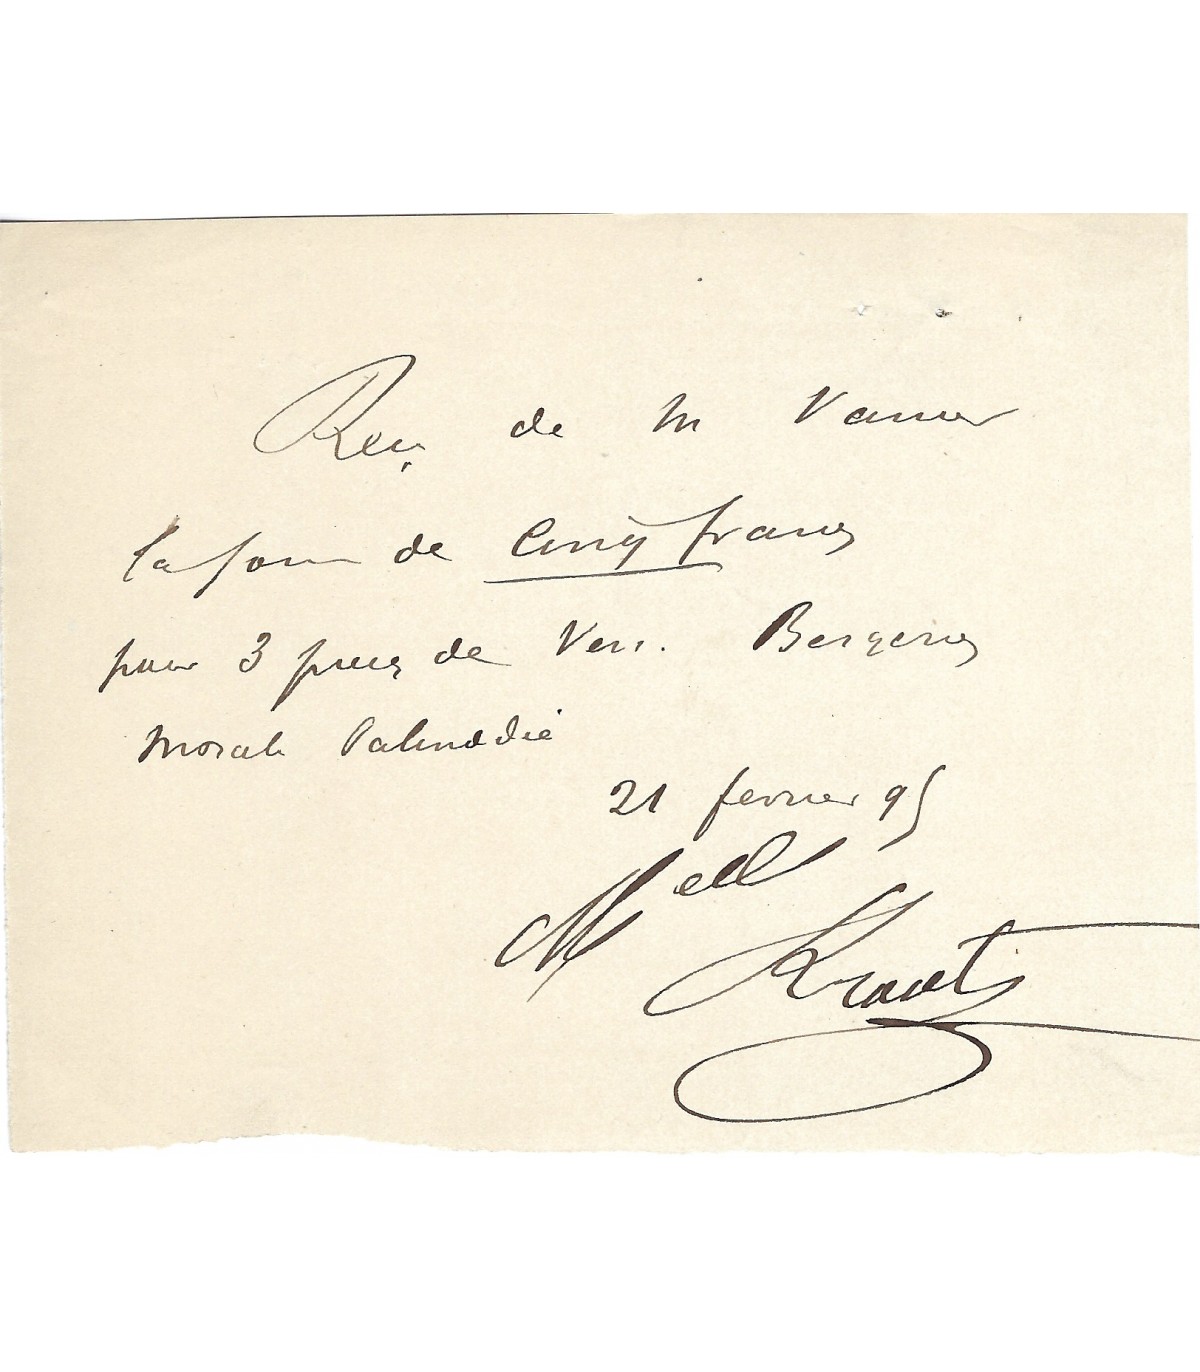 Reçu de M Vanier
la som de Cinq francs
pour 3 pièces de Vers. Bergeries
Morale Palinodie
21 fevrier 95
Melle Krantz